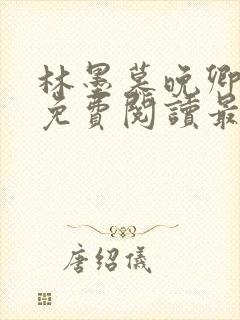 林墨莫晚卿
免費閱讀最
唐紹儀